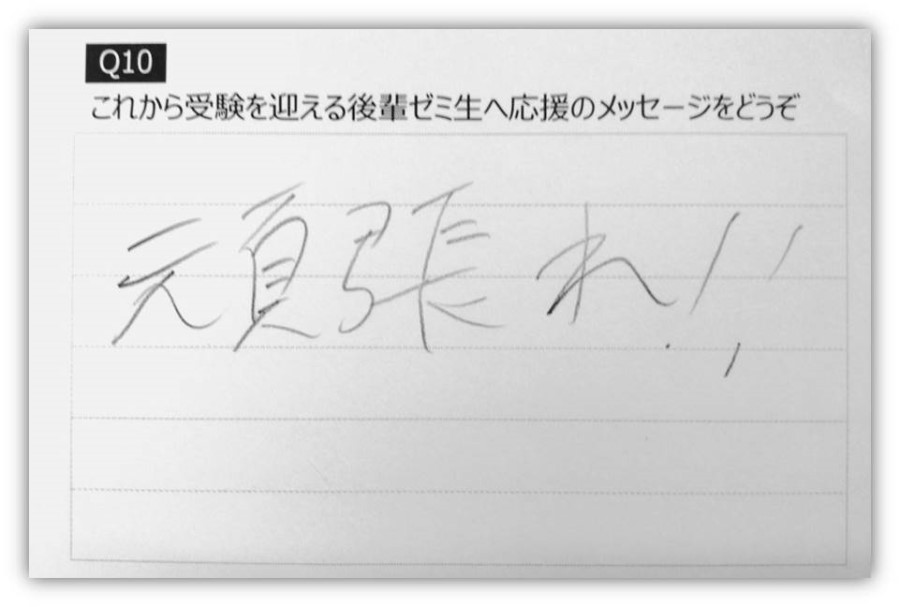 Q10
これから受験を迎える後輩ゼミ生へ応援のメッセージをどうぞ
頑張れ!!